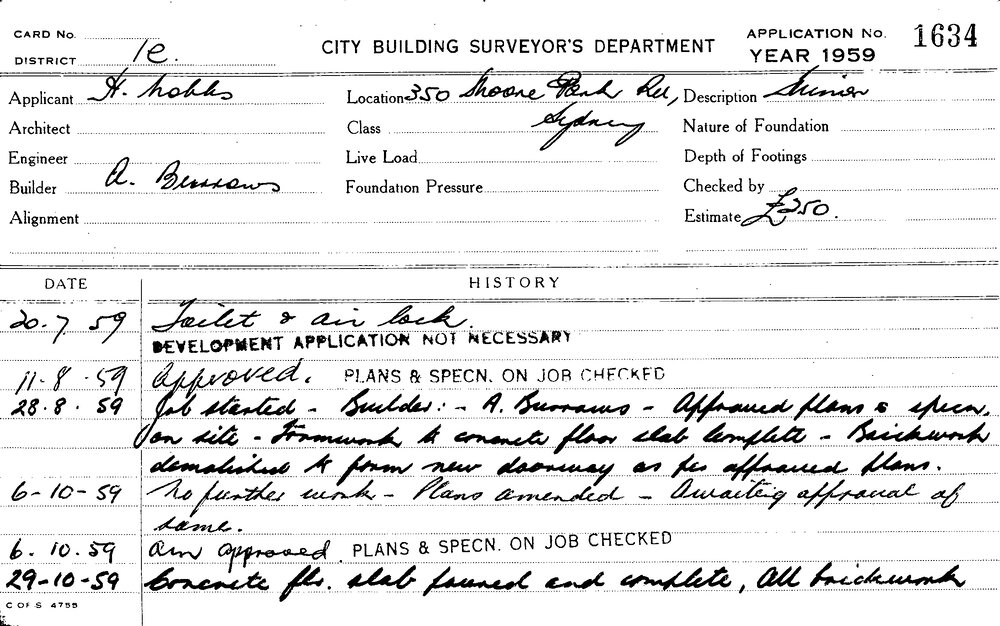 CARD No.
DISTRICT 1e.
CITY BUILDING SURVEYOR'S DEPARTMENT
APPLICATION No. 1634
YEAR 1959
Applicant H. Nobbs
Location 350 Moore Park Rd, Sydney
Description Minor
Architect
Class
Nature of Foundation
Engineer
Live Load
Depth of Footings
Builder A. Burrows
Foundation Pressure
Checked by
Alignment
Estimate £250.
DATE HISTORY
20.7.59 Toilet & air lock.
DEVELOPMENT APPLICATION NOT NECESSARY
11-8.59 Approved. PLANS & SPECN. ON JOB CHECKED
28.8.59 Job started - Builder:- A. Burrows - Approved plans & specn.
on site - Formwork to concrete floor slab complete - Brickwork
demolished to form new doorway as per approved plans.
6-10-59 No further work - Plans amended - Awaiting approval of
same.
6.10.59 Am approved PLANS & SPECN. ON JOB CHECKED
29-10-59 Concrete flr. slab poured and complete, All brickwork
C OF S 4755